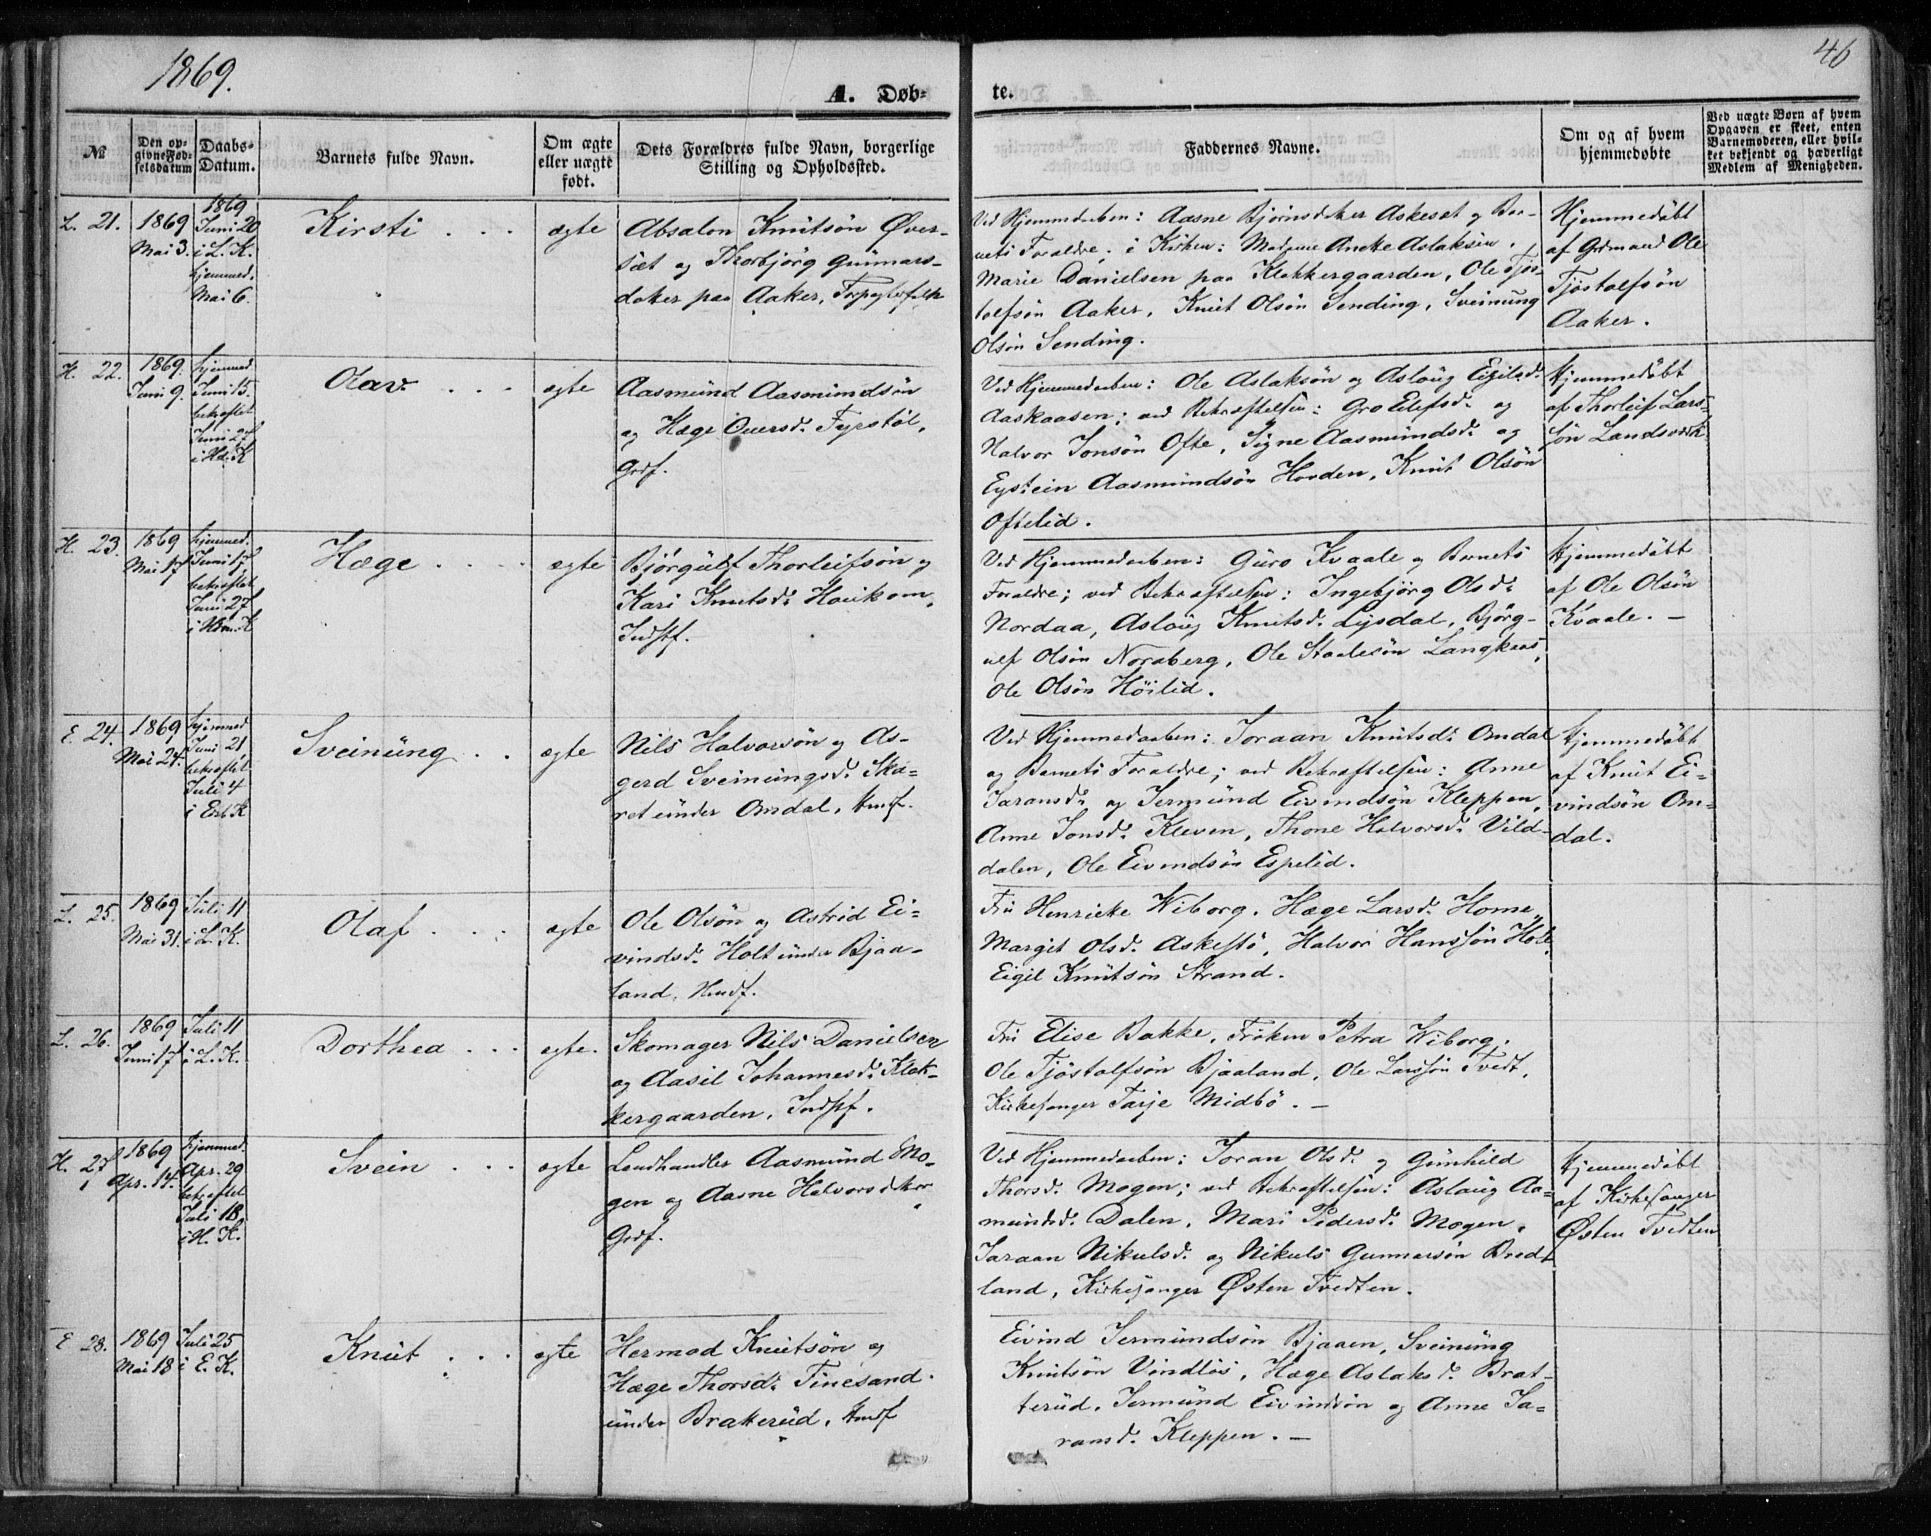 1869.
46
A. Døb-
te.
№
Den op-
givne Fød-
selsdatum
Daabs-
Datum.
Barnets fulde Navn.
Om ægte
eller uægte
født.
Dets Forældres fulde Navn, borgerlige
Stilling og Opholdssted.
Faddernes Navne.
Om og af hvem
hjemmedøbte
Ved uægte Børn af hvem
Opgaven er skeet, enten
Barnemoderen, eller hvil-
ket bekjendt og hæderligt
Medlem af Menigheden.
L. 21.
1869
Mai 3.
1869
Juni 20
i L. K.
hjemmed.
Mai 6.
Kirsti . . .
ægte
Absalon Knutsøn Øver-
sæt og Thorbjørg Gunnars-
daker paa Aaker,
Ved Hjemmedaaben: Aasne Bjørnsdaker Askesat og Bar-
nets Forældre; i Kirken: Madame Aneke Aslaksen,
Marie Danielsen paa Klokkergaarden, Ole Tjøs-
tolfsøn Aaker, Knut Olsøn Sending, Sveinung
Olsøn Sending.
Hjemmedøbt
af Grdmand Ole
Tjøstolfsøn
Aaker.
H. 22.
1869.
Juni 9.
hjemmed.
Juni 15.
bekræftet
Juni 27
i Hd. K
Olav . . .
ægte
Aasmund Aasmundsøn
og Hæge Oversd. Fyrstøl,
Grdf.
Ved Hjemmedaaben: Ole Aslaksøn og Aslaug Eigilsd.
Aaskaasen; ved Bekræftelsen: Gro Eilefsd. og
Halvor Jonsøn Ofte, Signe Aasmundsd. og
Eystein Aasmundsøn Hovden, Knut Olsøn
Oftelid.
Hjemmedøbt
af Thorleif Lars-
søn Landsverk
H. 23.
1869
Mai 17
hjemmed.
Juni 17,
bekræftet
Juni 27
i Hm. K
Hæge . . . .
ægte
Bjørgulf Thorleifsøn og
Kari Knutsd. Haukom,
Indstf.
Ved Hjemmedaaben: Guro Kvaale og Barnets
Forældre; ved Bekræftelsen: Ingebjørg Olsd.
Nordaa, Aslaug Knutsd. Lysdal, Bjørg-
ulf Olsøn Nordberg, Ole Stadesøn Langkaas,
Ole Olsøn Høilid.
Hjemmedøbt
af Ole Olsøn
Kvaale. —
E. 24.
1869
Mai 24.
hjemmed.
Juni 21,
bekræftet
Juli 4
i Eid. K
Sveinung . .
ægte
Nils Halvorsøn og As-
gerd Sveinungsd. Ska-
ret under Omdal, Husf.
Ved Hjemmedaaben: Joraan Knutsd. Omdal
og Barnets Forældre; ved Bekræftelsen: Anne
Jaransd. og Jermund Eivindsøn Kleppen,
Anne Jonsd. Kleven, Thone Halvorsd. Vild-
dalen, Ole Eivindsøn Espelid.
Hjemmedøbt
af Knut Ei-
vindsøn Om-
dal.
L. 25.
1869
Mai 31.
Juli 11
i L. K.
Olaf . . .
ægte
Ole Olsøn og Astrid Ei-
vindsd. Holt under Bjaa-
land, Husf.
Fru Henrieke Wiborg, Hæge Larsd. Homme,
Margit Olsd. Askestø, Halvor Hanssøn Hole,
Eigil Knutsøn Strand.
L. 26.
1869
Juni 17
Juli 11
i L. K.
Dorthea . . .
ægte.
Skomager Nils Danielsen
og Aasil Johannesd. Klok-
kergaarden, Indstf.
Fru Elise Bakke, Frøken Petra Wiborg,
Ole Tjøstolfsøn Bjaaland, Ole Larssøn Tvedt,
Kirkesanger Tarje Midbø. —
H. 27
1869
Apr. 14.
hjemmed.
Apr. 29
bekræftet
Juli 18.
i H. K.
Svein . . .
ægte
Landhandler Aasmund Mo-
gen og Aasne Halvorsdker
Grdf.
Ved Hjemmedaaben: Joran Olsd. og Gunhild
Thorsd. Mogen; ved Bekræftelsen: Aslaug Aa-
mundsd. Dalen, Mari Pedersd. Mogen,
Jaraan Nikulsd. og Nikuls Gunnarsøn Bredt
land, Kirkesanger Østen Tvedten.
Hjemmedøbt
af Kirkesanger
Østen Tvedten
E 28.
1869
Mai 18
Juli 25
i E. K.
Knut . . .
ægte
Hermod Knutsøn og
Hæge Thorsd. Tinesand
under Brakerud, Husf
Eivind Jermundsøn Bjaaen, Sveinung
Knutsøn Vindløs, Hæge Aslaksd. Brat-
terud, Jermund Eivindsøn og Anne Ja-
ransd. Kleppen. —